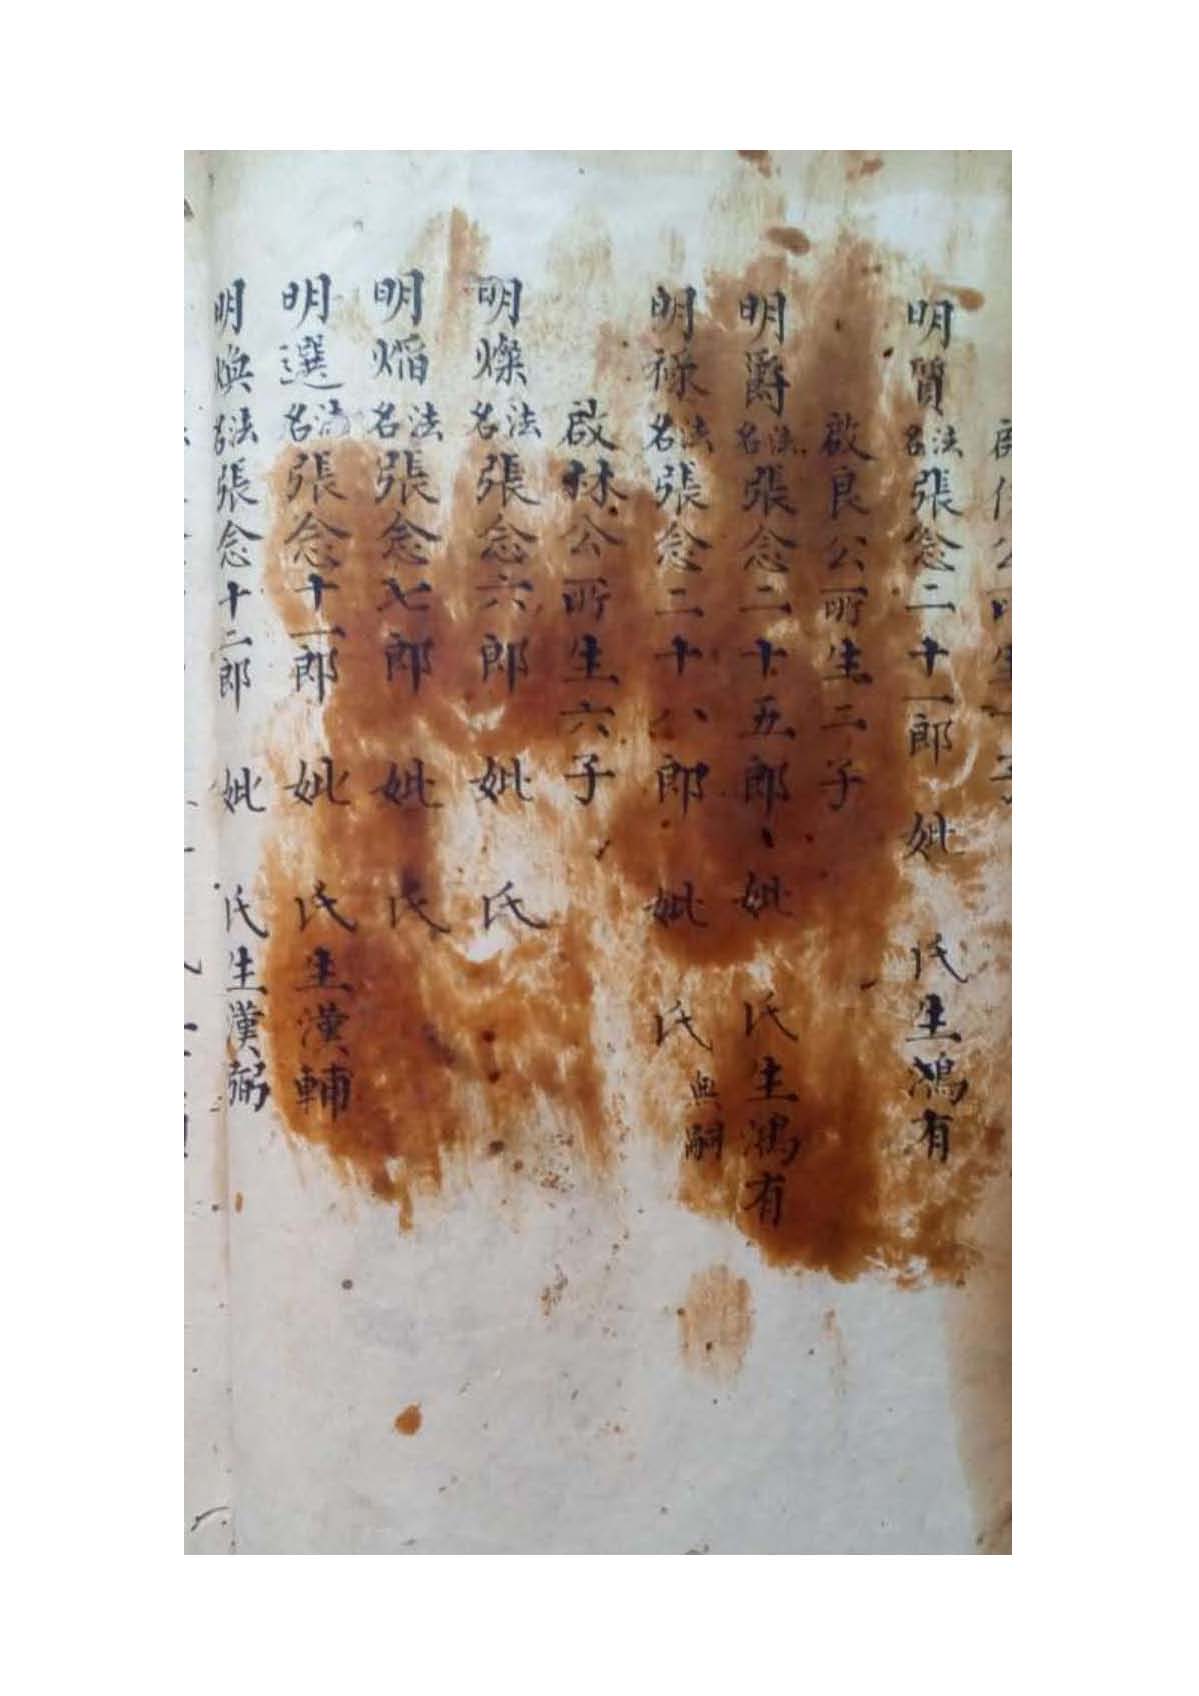 明質法名張念二十一郎 妣 氏生鴻有
啟良公所生二子
明爵法名張念二十五郎、妣 氏生鴻有
明祿法名張念二十八郎 妣 氏 無嗣
啟林公所生六子
明燦法名張念六郎 妣 氏
明熖法名張念七郎 妣 氏
明選法名張念十一郎 妣 氏生漢輔
明煥法名張念十二郎 妣 氏生漢弼